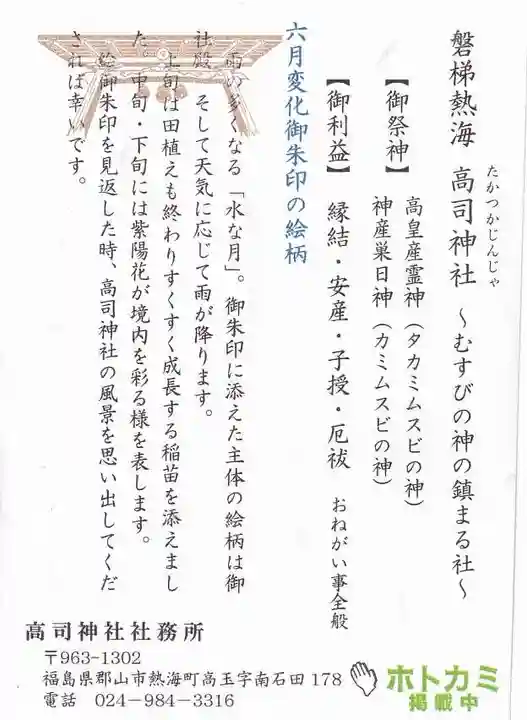 磐梯熱海 高司神社 〜むすびの神の鎮まる社〜
たかつかじんじゃ
【御祭神】 高皇産霊神（タカミムスビの神）
神産巣日神（カミムスビの神）
【御利益】 縁結・安産・子授・厄祓 おねがい事全般
六月変化御朱印の絵柄
雨の多くなる「水な月」。御朱印に添えた主体の絵柄は御
社殿、そして天気に応じて雨が降ります。
上旬は田植えも終わりすくすく成長する稲苗を添えまし
た。中旬・下旬には紫陽花が境内を彩る様を表します。
絵御朱印を見返した時、高司神社の風景を思い出してくだ
されば幸いです。
高司神社社務所
〒963-1302
福島県郡山市熱海町高玉字南石田 178
電話 024-984-3316
ホトカミ
掲載中